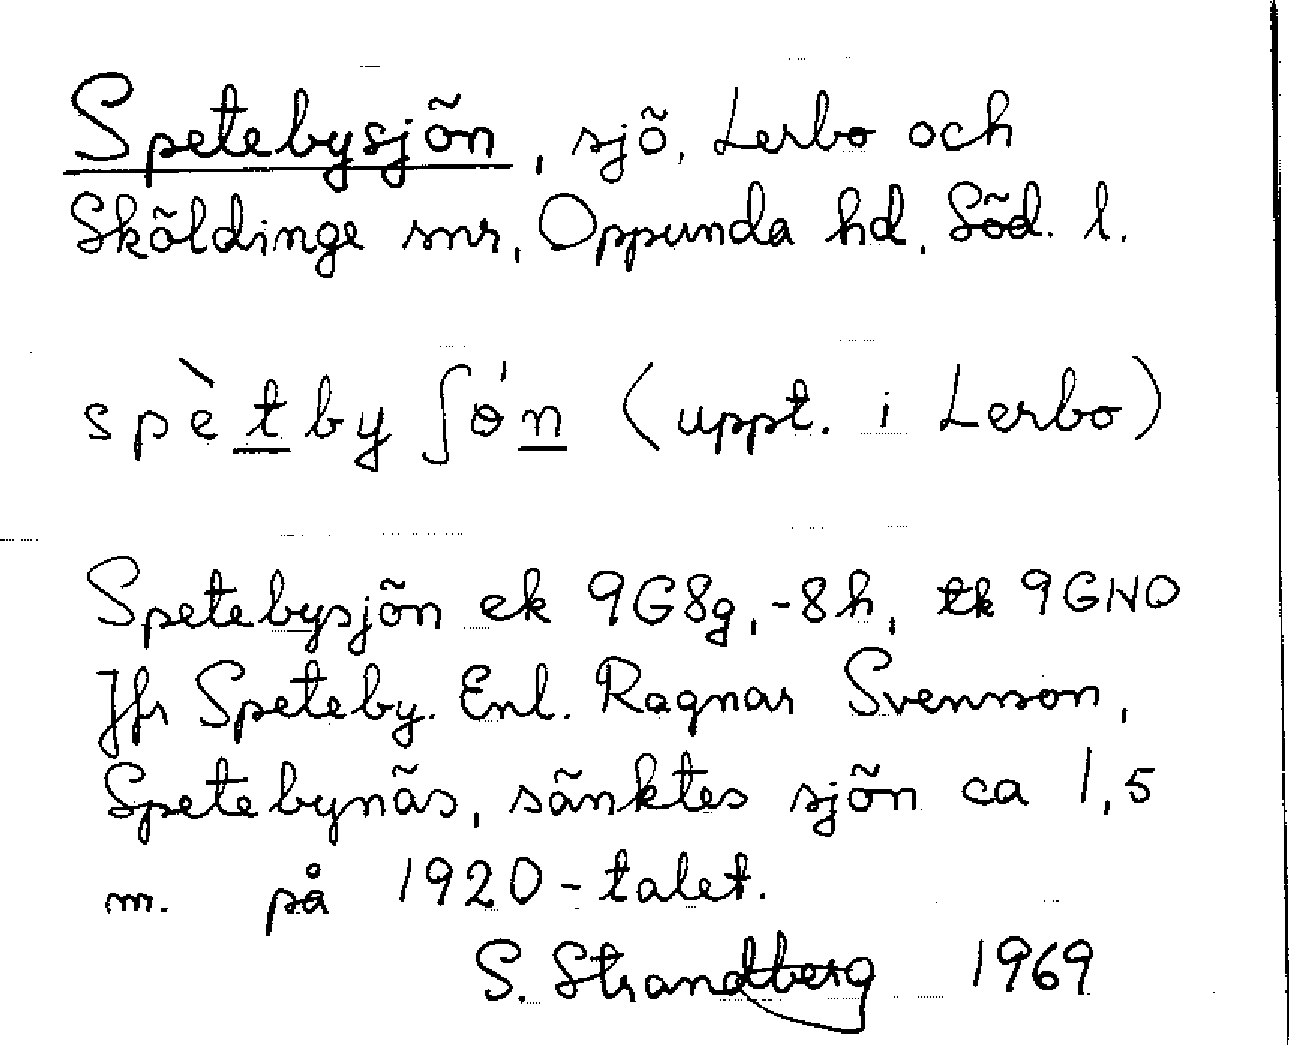 Spetebysjön, sjö, Lerbo och
Sköldinge snr, Oppunda hd, Söd. l.
spètby ʃɵ́n (uppt. i Lerbo)
Spetebysjön ek 9G8g, -8h, tk 9GNO
Jfr Speteby. Enl. Ragnar Svensson,
Spetebynäs, sänktes sjön ca 1,5
m. på 1920-talet.
S. Strandberg 1969